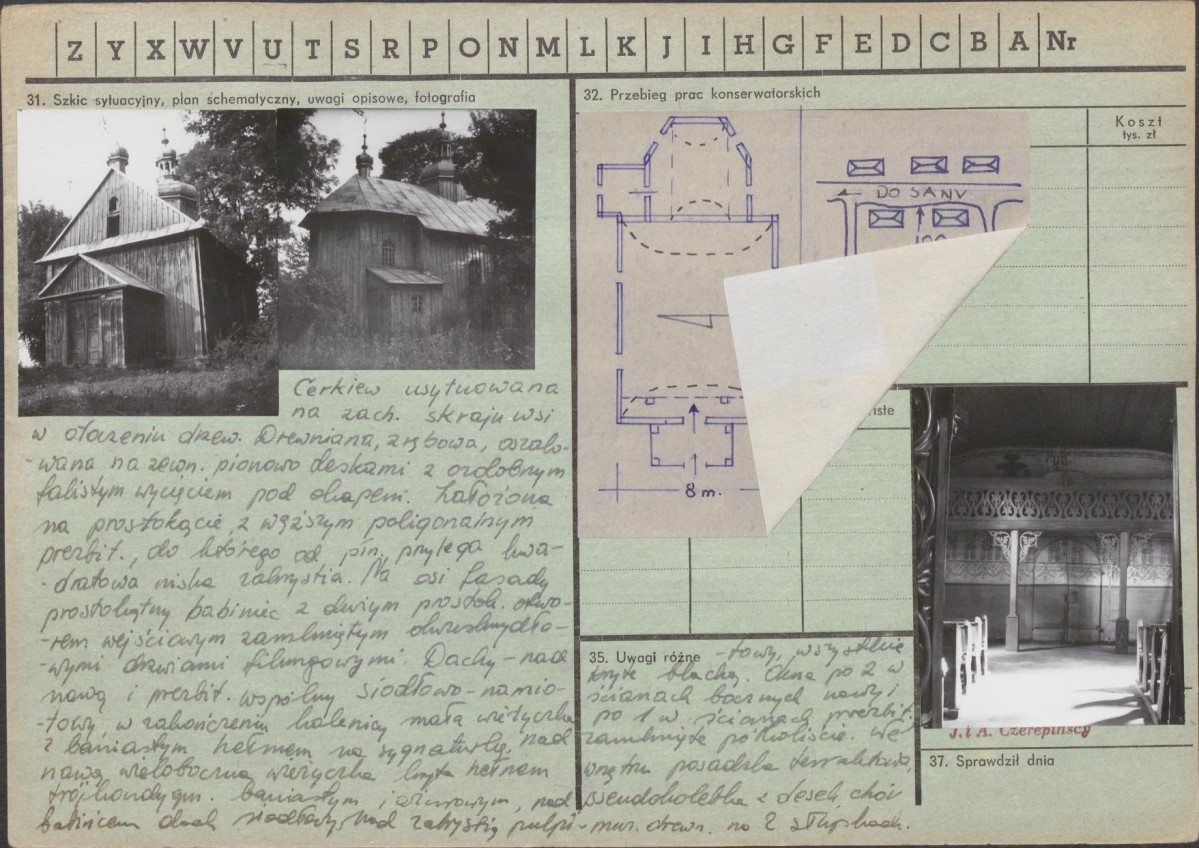 Z Y X W V U T S R P O N M L K J I H G F E D C B A Nr
31. Szkic sytuacyjny, plan schematyczny, uwagi opisowe, fotografia
Cerkiew usytuowana
na zach. skraju wsi
w otoczeniu drzew. Drewniana, zrębowa, oszalo-
-wana na zewn. pionowo deskami z ozdobnym
falistym wycięciem pod okapem. Założona
na prostokącie, z węższym poligonalnym
prezbit., do którego od płn. przylega kwa-
-dratowa niska zakrystia. Na osi fasady
prostokątny babiniec z dużym prostok. otwo-
-rem wejściowym zamkniętym dwuskrzydło-
-wymi drzwiami filungowymi. Dachy - nad
nawą i prezbit. wspólny siodłowo-namio-
-towy, w zakończeniu kalenicy mała wieżyczka
z baniastym hełmem na sygnaturkę, nad
nawą wieloboczna wieżyczka kryta hełmem
trójkondygn. baniastym i ażurowym, nad
babińcem dach siodłowy, nad zakrystią pulpi-
32. Przebieg prac konserwatorskich
Koszt
tys. zł
DO SANU
8 m.
35. Uwagi różne
-towy, wszystkie
kryte blachą. Okna po 2 w
ścianach bocznych nawy i
po 1 w ścianach prezbit.
zamknięte półkoliście. We
wnętrzu posadzka terrakotowa,
pseudokolebka z desek, chór
muz. drewn. na 2 słupkach.
J. i A. Czerepińscy
37. Sprawdził dnia